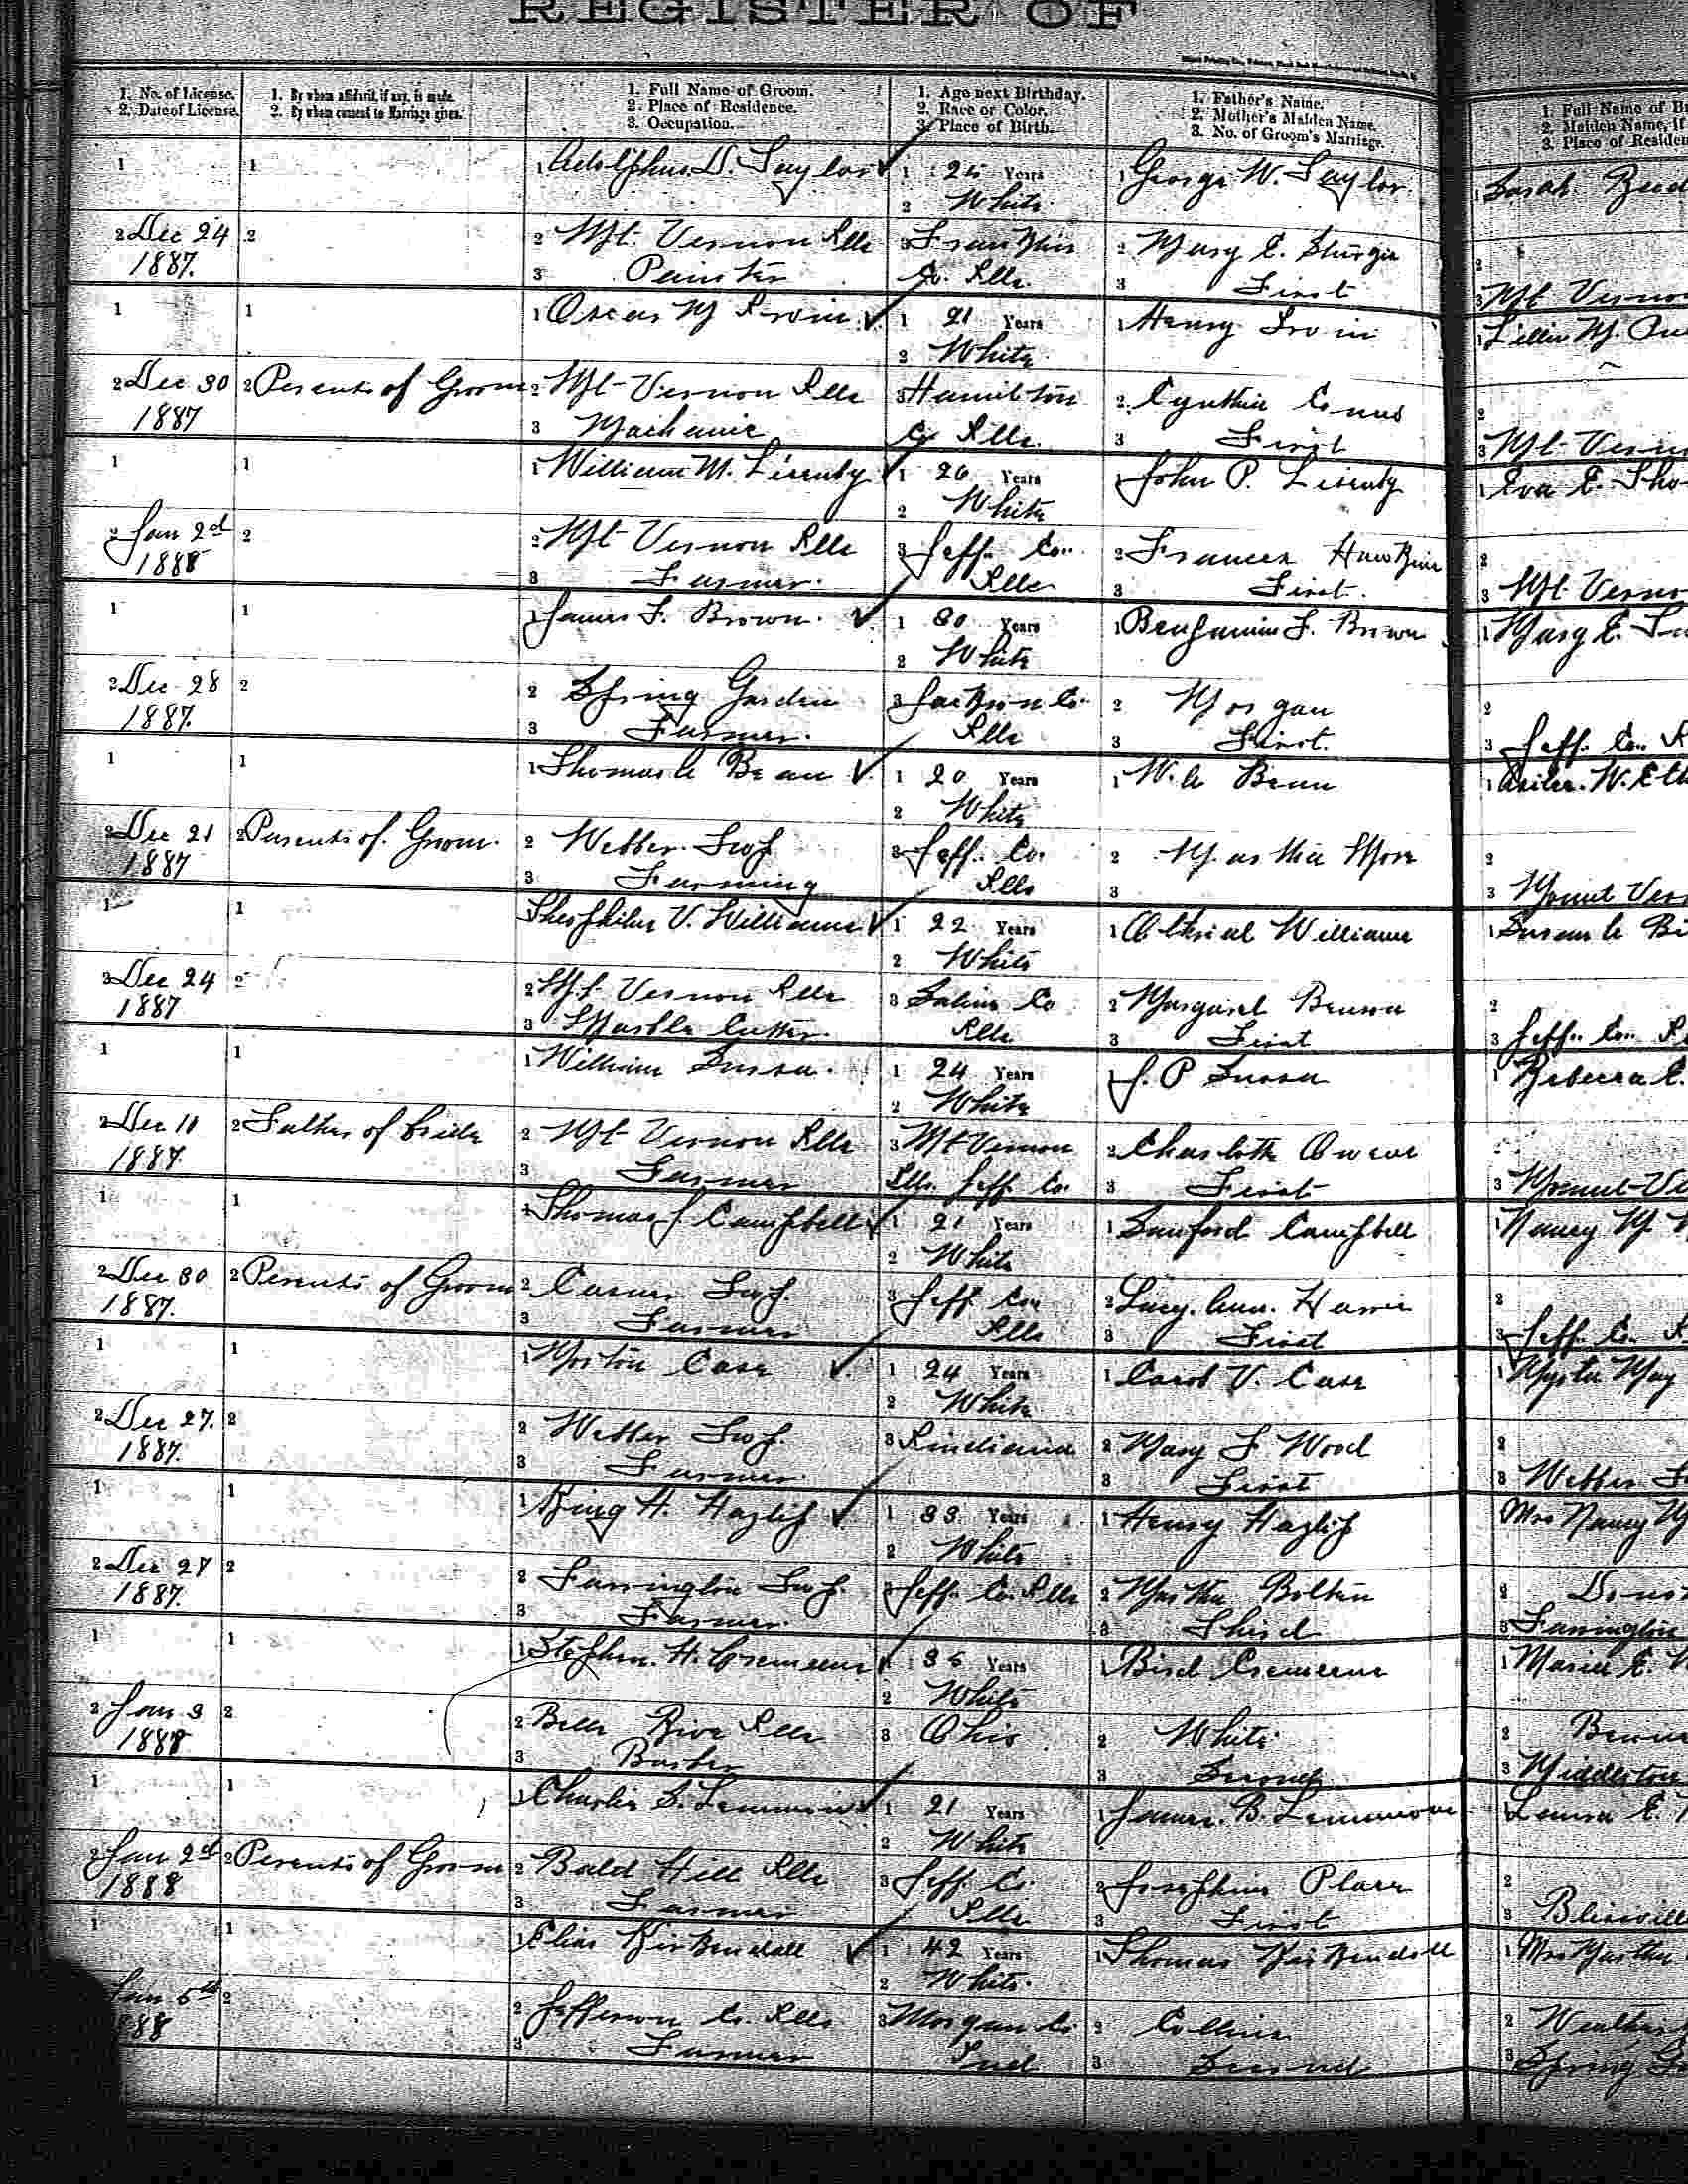 REGISTER OF
1. No. of License.
2. Date of License.
1. By whom affidavit, if any, is made.
2. By whom consent to Marriage given.
1. Full Name of Groom.
2. Place of Residence.
3. Occupation.
1. Age next Birthday.
2. Race or Color.
3. Place of Birth.
1. Father's Name.
2. Mother's Maiden Name.
3. No. of Groom's Marriage.
1. Full Name of Br
2. Maiden Name, if
3. Place of Residen
1 1 1 Adolphus D. Taylor 1 Years 1 George W. Taylor 1 Sarah
2 White
2 Dec 24 2 2 Mt. Vernon Ills 3 Franklin 2 Mary E. Sturgis 2
1887. 3 Painter Co. Ills. 3 First 3 Mt Verno
1 1 1 Oscar M Irwin 1 21 Years 1 Henry Irwin 1 Lillie M.
2 White
2 Dec 30 2 Parents of Groom 2 Mt Vernon Ills 3 Hamilton 2 Cynthia 2
1887 3 Machanic Co Ills. 3 First 3 Mt Verno
1 1 1 William M. Lisenby 1 26 Years 1 John P. Lisenby 1 Eva E. Sho
2 White
2 Jan 2d 2 2 Mt Vernon Ills 3 Jeff. Co. 2 Frances Hawkins 2
1888 3 Farmer. Ills 3 First. 3 Mt Verno
1 1 1 James F. Brown. 1 30 Years 1 Benjamin F. Brown 1 Mary E.
2 White
2 Dec 28 2 2 Spring Garden 3 Jackson Co. 2 Morgan 2
1887. 3 Farmer. Ills 3 First. 3 Jeff. Co.
1 1 1 Thomas C Bean 1 20 Years 1 W. C Bean 1
2 White
2 Dec 21 2 Parents of Groom. 2 Webber Twp 3 Jeff. Co. 2 Martha 2
1887 3 Farming Ills 3 3 Mount Ver
1 1 Theophilus V. Williams 1 22 Years 1 Williams 1 Susan C
2 White
2 Dec 24 2 2 Mt. Vernon Ills 3 Saline Co 2 Margaret 2
1887 3 Marble Cutter. Ills 3 First 3 Jeff. Co.
1 1 1 William 1 24 Years 1 J. P 1 Rebecca E.
2 White
2 Dec 11 2 Father of bride 2 Mt Vernon Ills 3 Mt Vernon 2 Charlotte
1887. 3 Farmer Ills. Jeff Co. 3 First 3 Mount Ve
1 1 1 Thomas J Campbell 1 21 Years 1 Sanford Campbell 1 Nancy M
2 White
2 Dec 30 2 Parents of Groom 2 Casner Twp. 3 Jeff Co 2 Lucy Ann Harris 2
1887. 3 Farmer Ills 3 First 3 Jeff. Co.
1 1 1 Morton Case 1 24 Years 1 V. Case 1 May
2 White
2 Dec 27. 2 2 Webber Twp. 3 Indiana 2 Mary J Wood 2
1887. 3 Farmer 3 First 3 Webber
1 1 1 King H. Hazlip 1 33 Years 1 Henry Hazlip Mrs Nancy
2 White
2 Dec 27 2 2 Farrington Twp. 3 Jeff. Co. Ills 2 Martha Bolton 2
1887. 3 Farmer. 3 Third 3 Farrington
1 1 1 Stephen H. Cremeens 1 Years 1 Bird Cremeens 1
2 White
2 Jan 3 2 2 Belle Rive Ills 3 Ohio 2 White 2
1888 3 3 Second 3 Middleton
1 1 1 Charlie S. 1 21 Years 1 James. B. Louisa E.
2 White
2 Jan 2d 2 Parents of Groom 2 Bald Hill Ills 3 Jeff. Co. 2 Josephine Place 2
1888 3 Farmer Ills 3 First 3
1 1 1 Elias Kirkendall 1 42 Years 1 Thomas Kirkendall 1 Mrs Martha
2 White
Jan 5th 2 2 Jefferson Co. Ills. 3 Morgan Co 2 Collins 2
888 3 Farmer Ind 3 Second 3 Spring